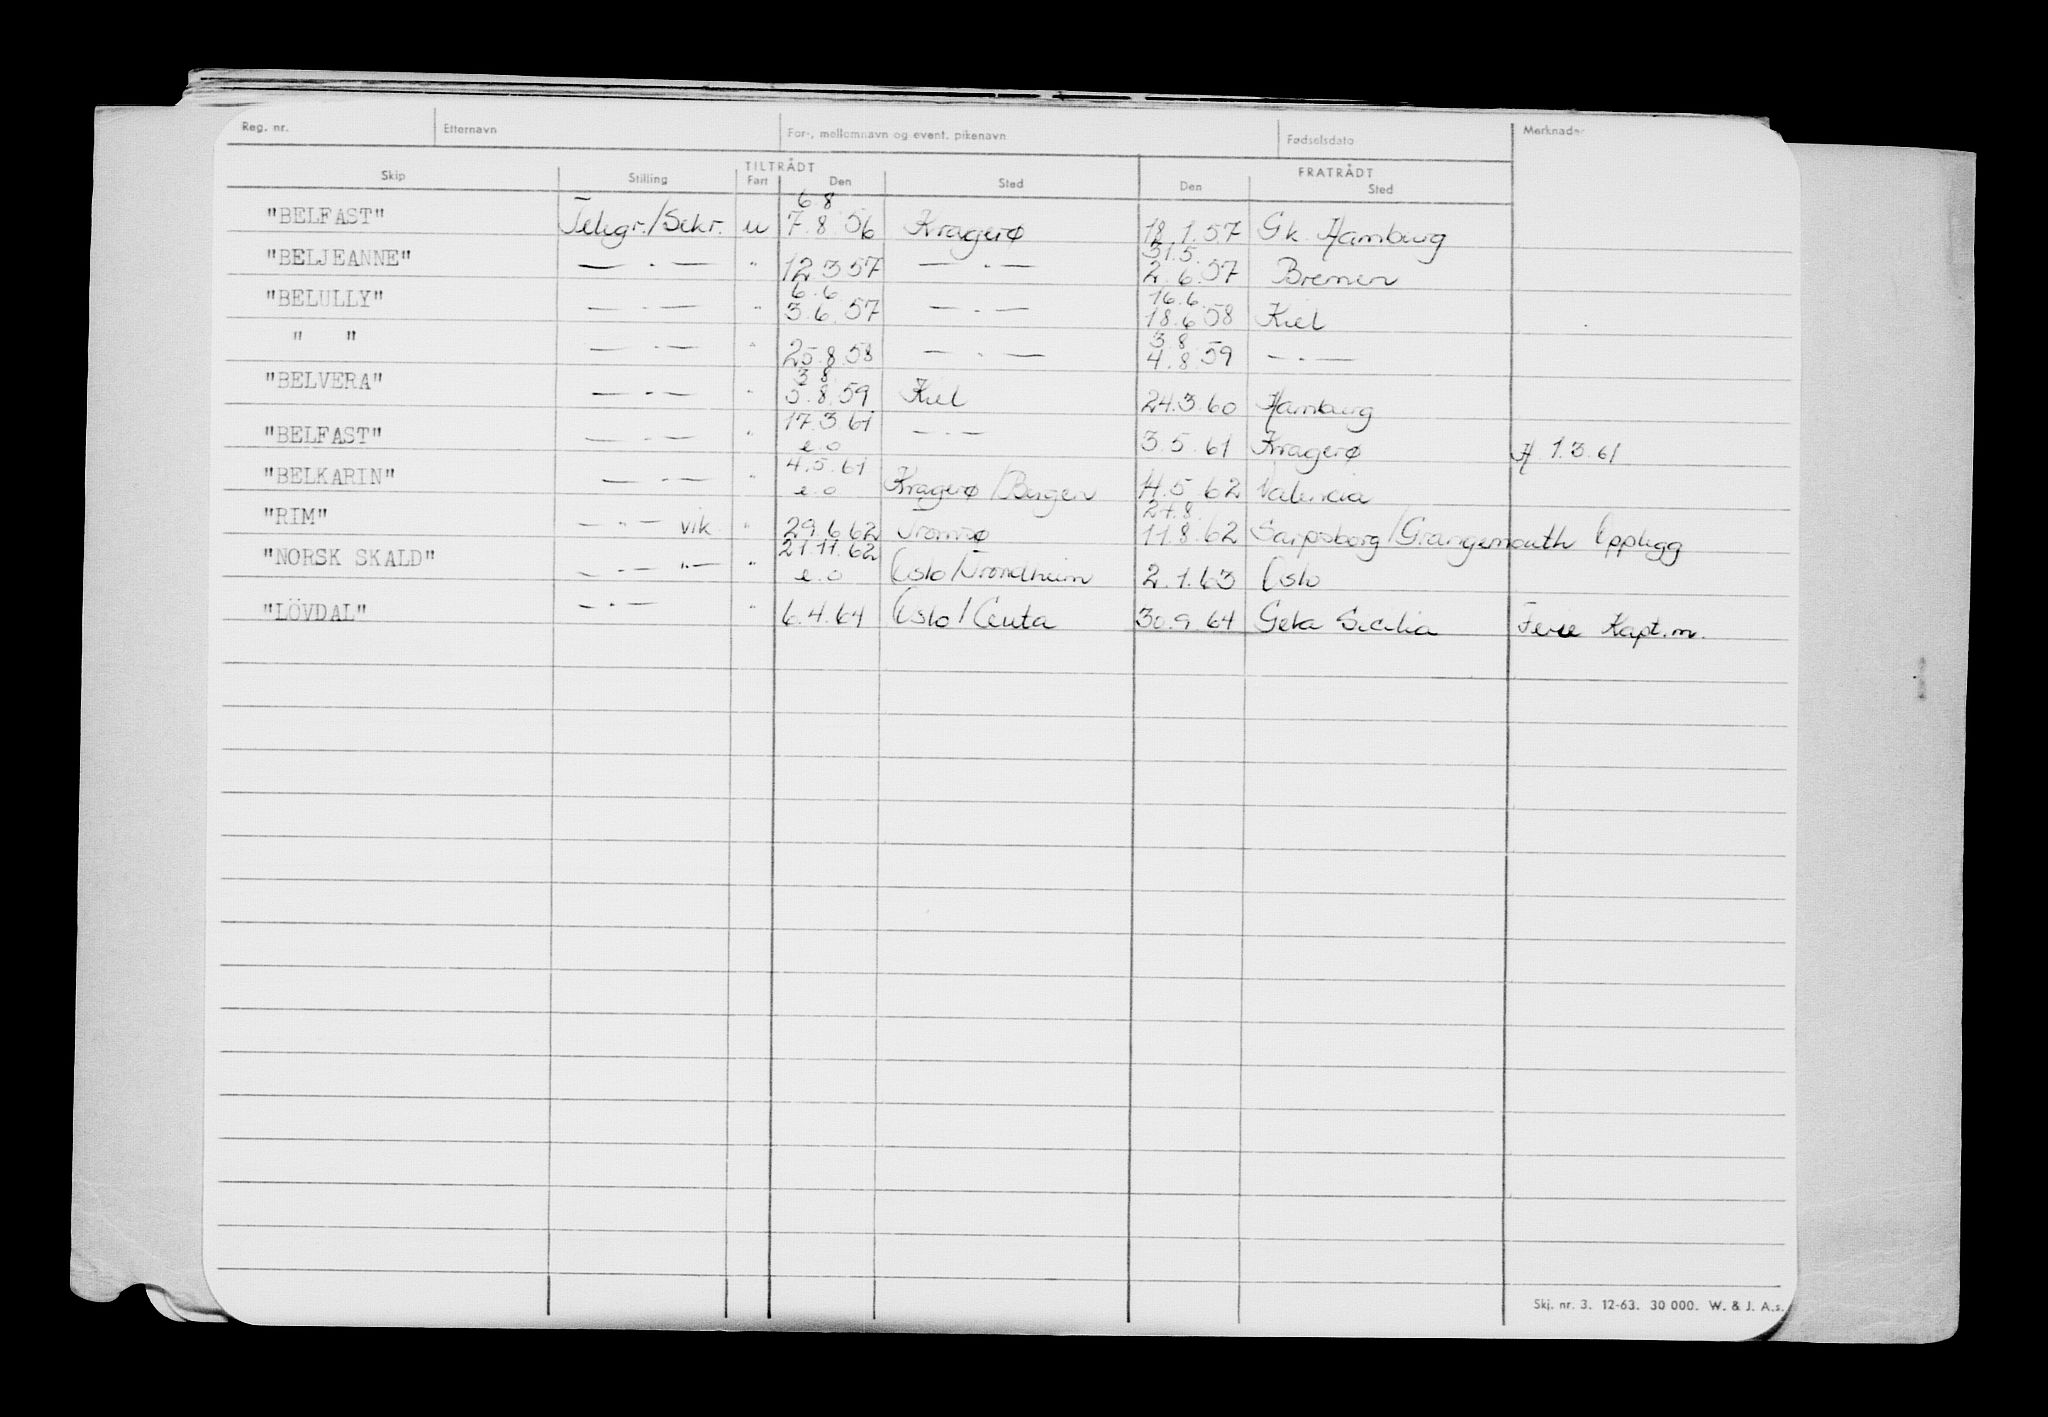 Reg. nr. Etternavn For-, mellomnavn og event. pikenavn Fødselsdato Merknader
TILTRÅDT FRATRÅDT
Skip Stilling Fart Den Sted Den Sted
6.8
"BELFAST" Telegr./Sekr. u 7.8.56 Kragerø 18.1.57 Gk. Hamburg
31.5.
"BELJEANNE" — . — " 12.3.57 — . — 2.6.57 Bremen
6.6 16.6.
"BELULLY" — . — " 3.6.57 — . — 18.6.58 Kiel
3.8.
" " — . — " 25.8.58 — . — 4.8.59 — . —
3.8.
"BELVERA" — . — " 5.8.59 Kiel 24.3.60 Hamburg
17.3.61
"BELFAST" — . — " e.o — . — 3.5.61 Kragerø A 1.3.61
4.5.61
"BELKARIN" — . — " e.o Kragerø/Bergen 14.5.62 Valencia
27.8.
"RIM" — " — vik. " 29.6.62 Tromsø 11.8.62 Sarpsborg/Grangemouth Opplegg
21.11.62
"NORSK SKALD" — . — " — " e.o Oslo/Trondheim 2.1.63 Oslo
"LÖVDAL" — . — " 6.4.64 Oslo/Ceuta 30.9.64 Gela Sicilia Ferie Kapt.m.
Skj. nr. 3. 12-63. 30 000. W. & J. A.s.